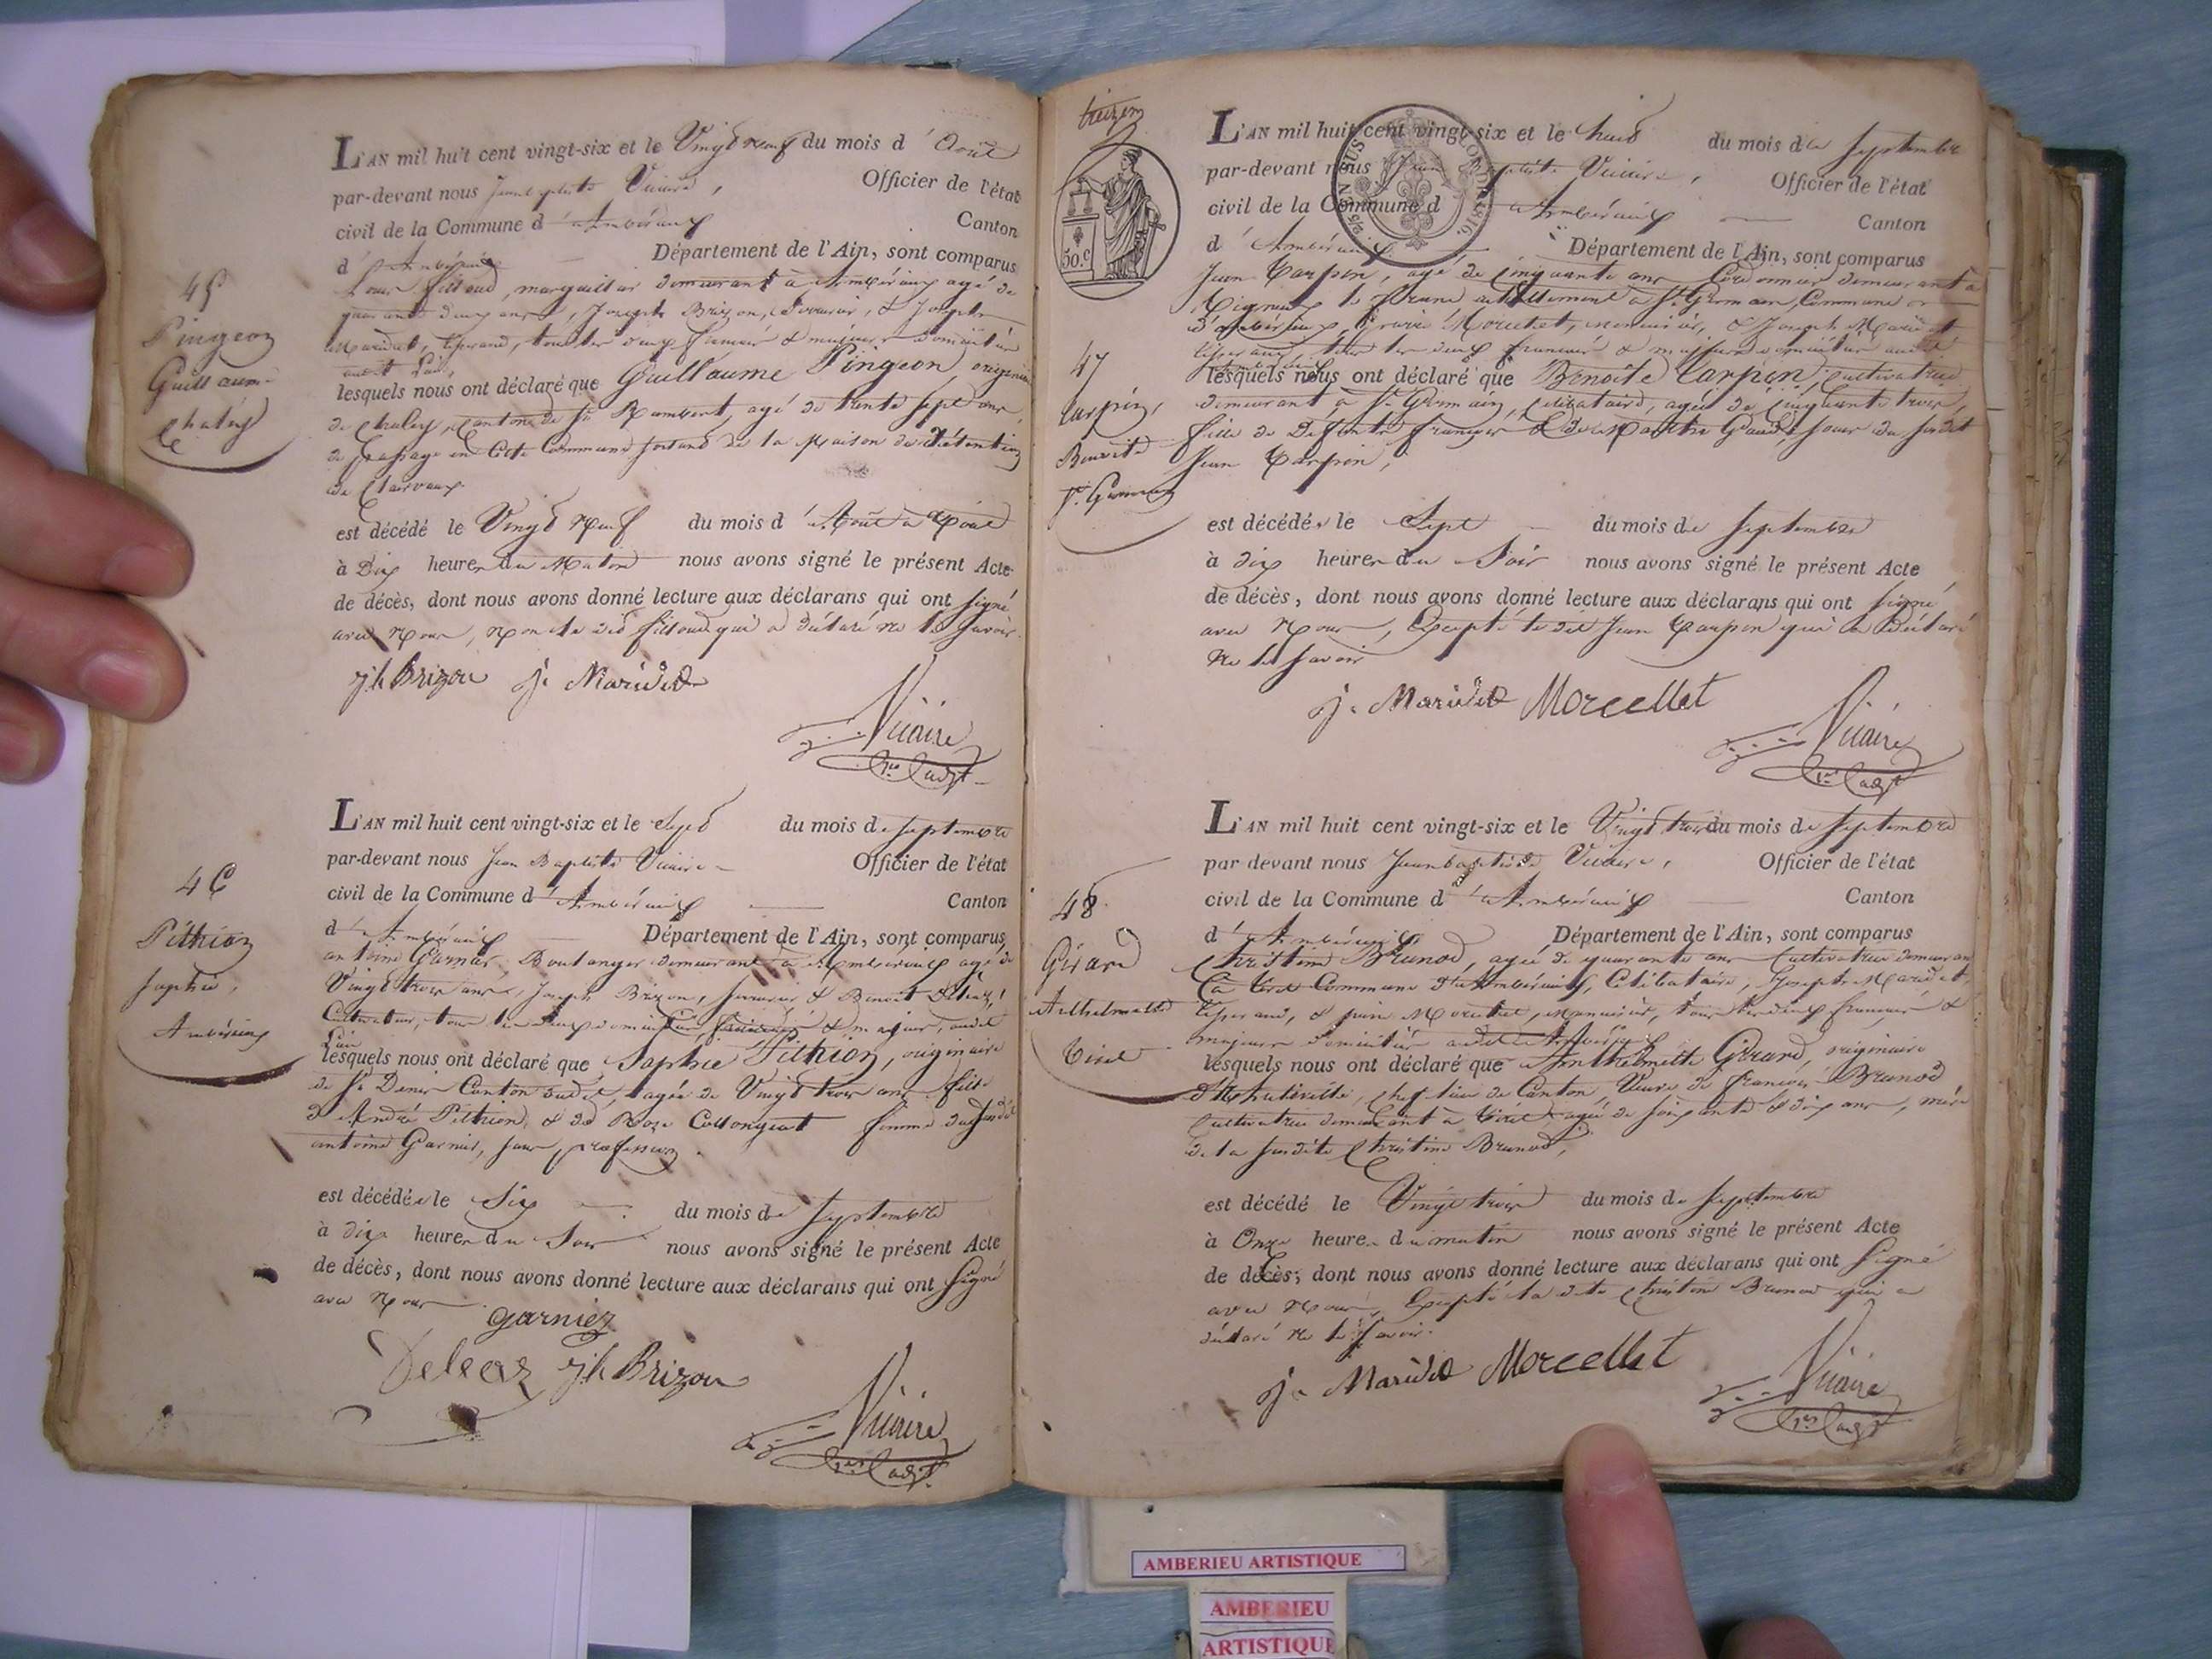 45
Pingeon
Guillaume
Chaley
L'AN mil huit cent vingt-six et le Vingt neuf du mois d'Août
par-devant nous Jean Baptiste Vicaire, Officier de l'état
civil de la Commune d'Ambérieux Canton
d'Ambérieux Département de l'Ain, sont comparus
Louis filloud, marguillier demeurant à Ambérieux agé de
quarante deux ans, Joseph Brizon, Serrurier, & Joseph
Maridet, tisserand, tous les deux français & majeurs domiciliés
audit Lieu,
lesquels nous ont déclaré que Guillaume Pingeon, originaire
de Chaley, canton de St Rambert, agé de trente sept ans
de passage en Cette Commune sortant de la Maison de Détention
de Clairvaux
est décédé le Vingt Neuf du mois d'Août
à Dix heures du Matin nous avons signé le présent Acte
de décès, dont nous avons donné lecture aux déclarans qui ont signé
avec Nous, Non le dit filloud qui a déclaré ne le savoir.
jh Brizon j. Maridet
Vicaire
1er adjt
46
Pithion
Sophie,
Ambérieux
L'AN mil huit cent vingt-six et le Sept du mois de Septembre
par-devant nous Jean Baptiste Vicaire Officier de l'état
civil de la Commune d'Ambérieux Canton
d'Ambérieux Département de l'Ain, sont comparus
antoine Garnier, Boulanger demeurant à Ambérieux agé de
Vingt trois ans, Joseph Brizon, serrurier & Benoit Deleaz,
Cultivateur, tous les deux domiciliés, français & majeurs, audit
Lieu
lesquels nous ont déclaré que Sophie Pithion, originaire
de St Denis Canton audit, agée de Vingt trois ans fille
d'André Pithion, & de Roze Collongeat femme du susdit
antoine Garnier, sans profession
est décédée le Six du mois de Septembre
à dix heures du Soir nous avons signé le présent Acte
de décès, dont nous avons donné lecture aux déclarans qui ont Signé
avec Nous
garnier
Deleaz jh Brizon
Vicaire
1er adjt
50.c
47
Carpin,
Benoite
St. Germain
L'AN mil huit cent vingt-six et le huit du mois de Septembre
par-devant nous Jean Baptiste Vicaire, Officier de l'état
civil de la Commune d'Ambérieux Canton
d'Ambérieux Département de l'Ain, sont comparus
Jean Carpin, agé de Cinquante ans Cordonnier demeurant à
actuellement à St Germain, Commune
d'Ambérieux, Morcellet, menuisier, & Joseph Maridet
tisserand, tous les deux français & majeurs domiciliés audit
lesquels nous ont déclaré que Benoite Carpin, cultivatrice
demeurant à St Germain, célibataire, agée de Cinquante trois,
fille de Défunts français & de Gaudet, soeur du susdit
Jean Carpin,
est décédée le Sept du mois de Septembre
à dix heures du Soir nous avons signé le présent Acte
de décès, dont nous avons donné lecture aux déclarans qui ont signé
avec Nous, Excepté le dit Jean Carpin qui a déclaré
Ne le savoir
j. Maridet Morcellet
Vicaire
1er adjt
48
Girard
Anthelmette
Tiret
L'AN mil huit cent vingt-six et le Vingt trois du mois de Septembre
par devant nous Jean baptiste Vicaire, Officier de l'état
civil de la Commune d'Ambérieux Canton
d'Ambérieux Département de l'Ain, sont comparus
Christine Brunod, agée de quarante ans Cultivatrice demeurant
à Tiret Commune d'Ambérieux, Célibataire, Joseph Maridet,
tisserand, & Morcellet, Menuisier, tous les deux français &
majeurs domiciliés
lesquels nous ont déclaré que Anthelmette Girard, originaire
d'Hauteville, chef lieu de Canton, Veuve de françois Brunod
Cultivatrice demeurant à Tiret agée de soixante & dix ans, mère
de la susdite Christine Brunod,
est décédé le Vingt trois du mois de Septembre
à Onze heures du matin nous avons signé le présent Acte
de décès; dont nous avons donné lecture aux déclarans qui ont Signé
avec Nous, Excepté la dite Christine Brunod qui a
déclaré ne le savoir.
j. Maridet Morcellet
Vicaire
1er adjt
AMBERIEU ARTISTIQUE
AMBERIEU
ARTISTIQUE